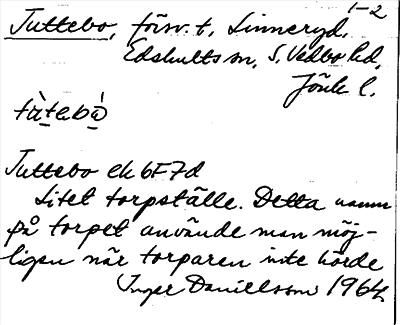 1-2
Juttebo, försv. t. Linneryd,
Edshults sn, S. Vedbo hd,
Jönk l.
Juttebo ek 6F7d
Litet torpställe. Detta namn
på torpet använde man möj-
ligen när torparen inte hörde
Inger Danielsson 1964